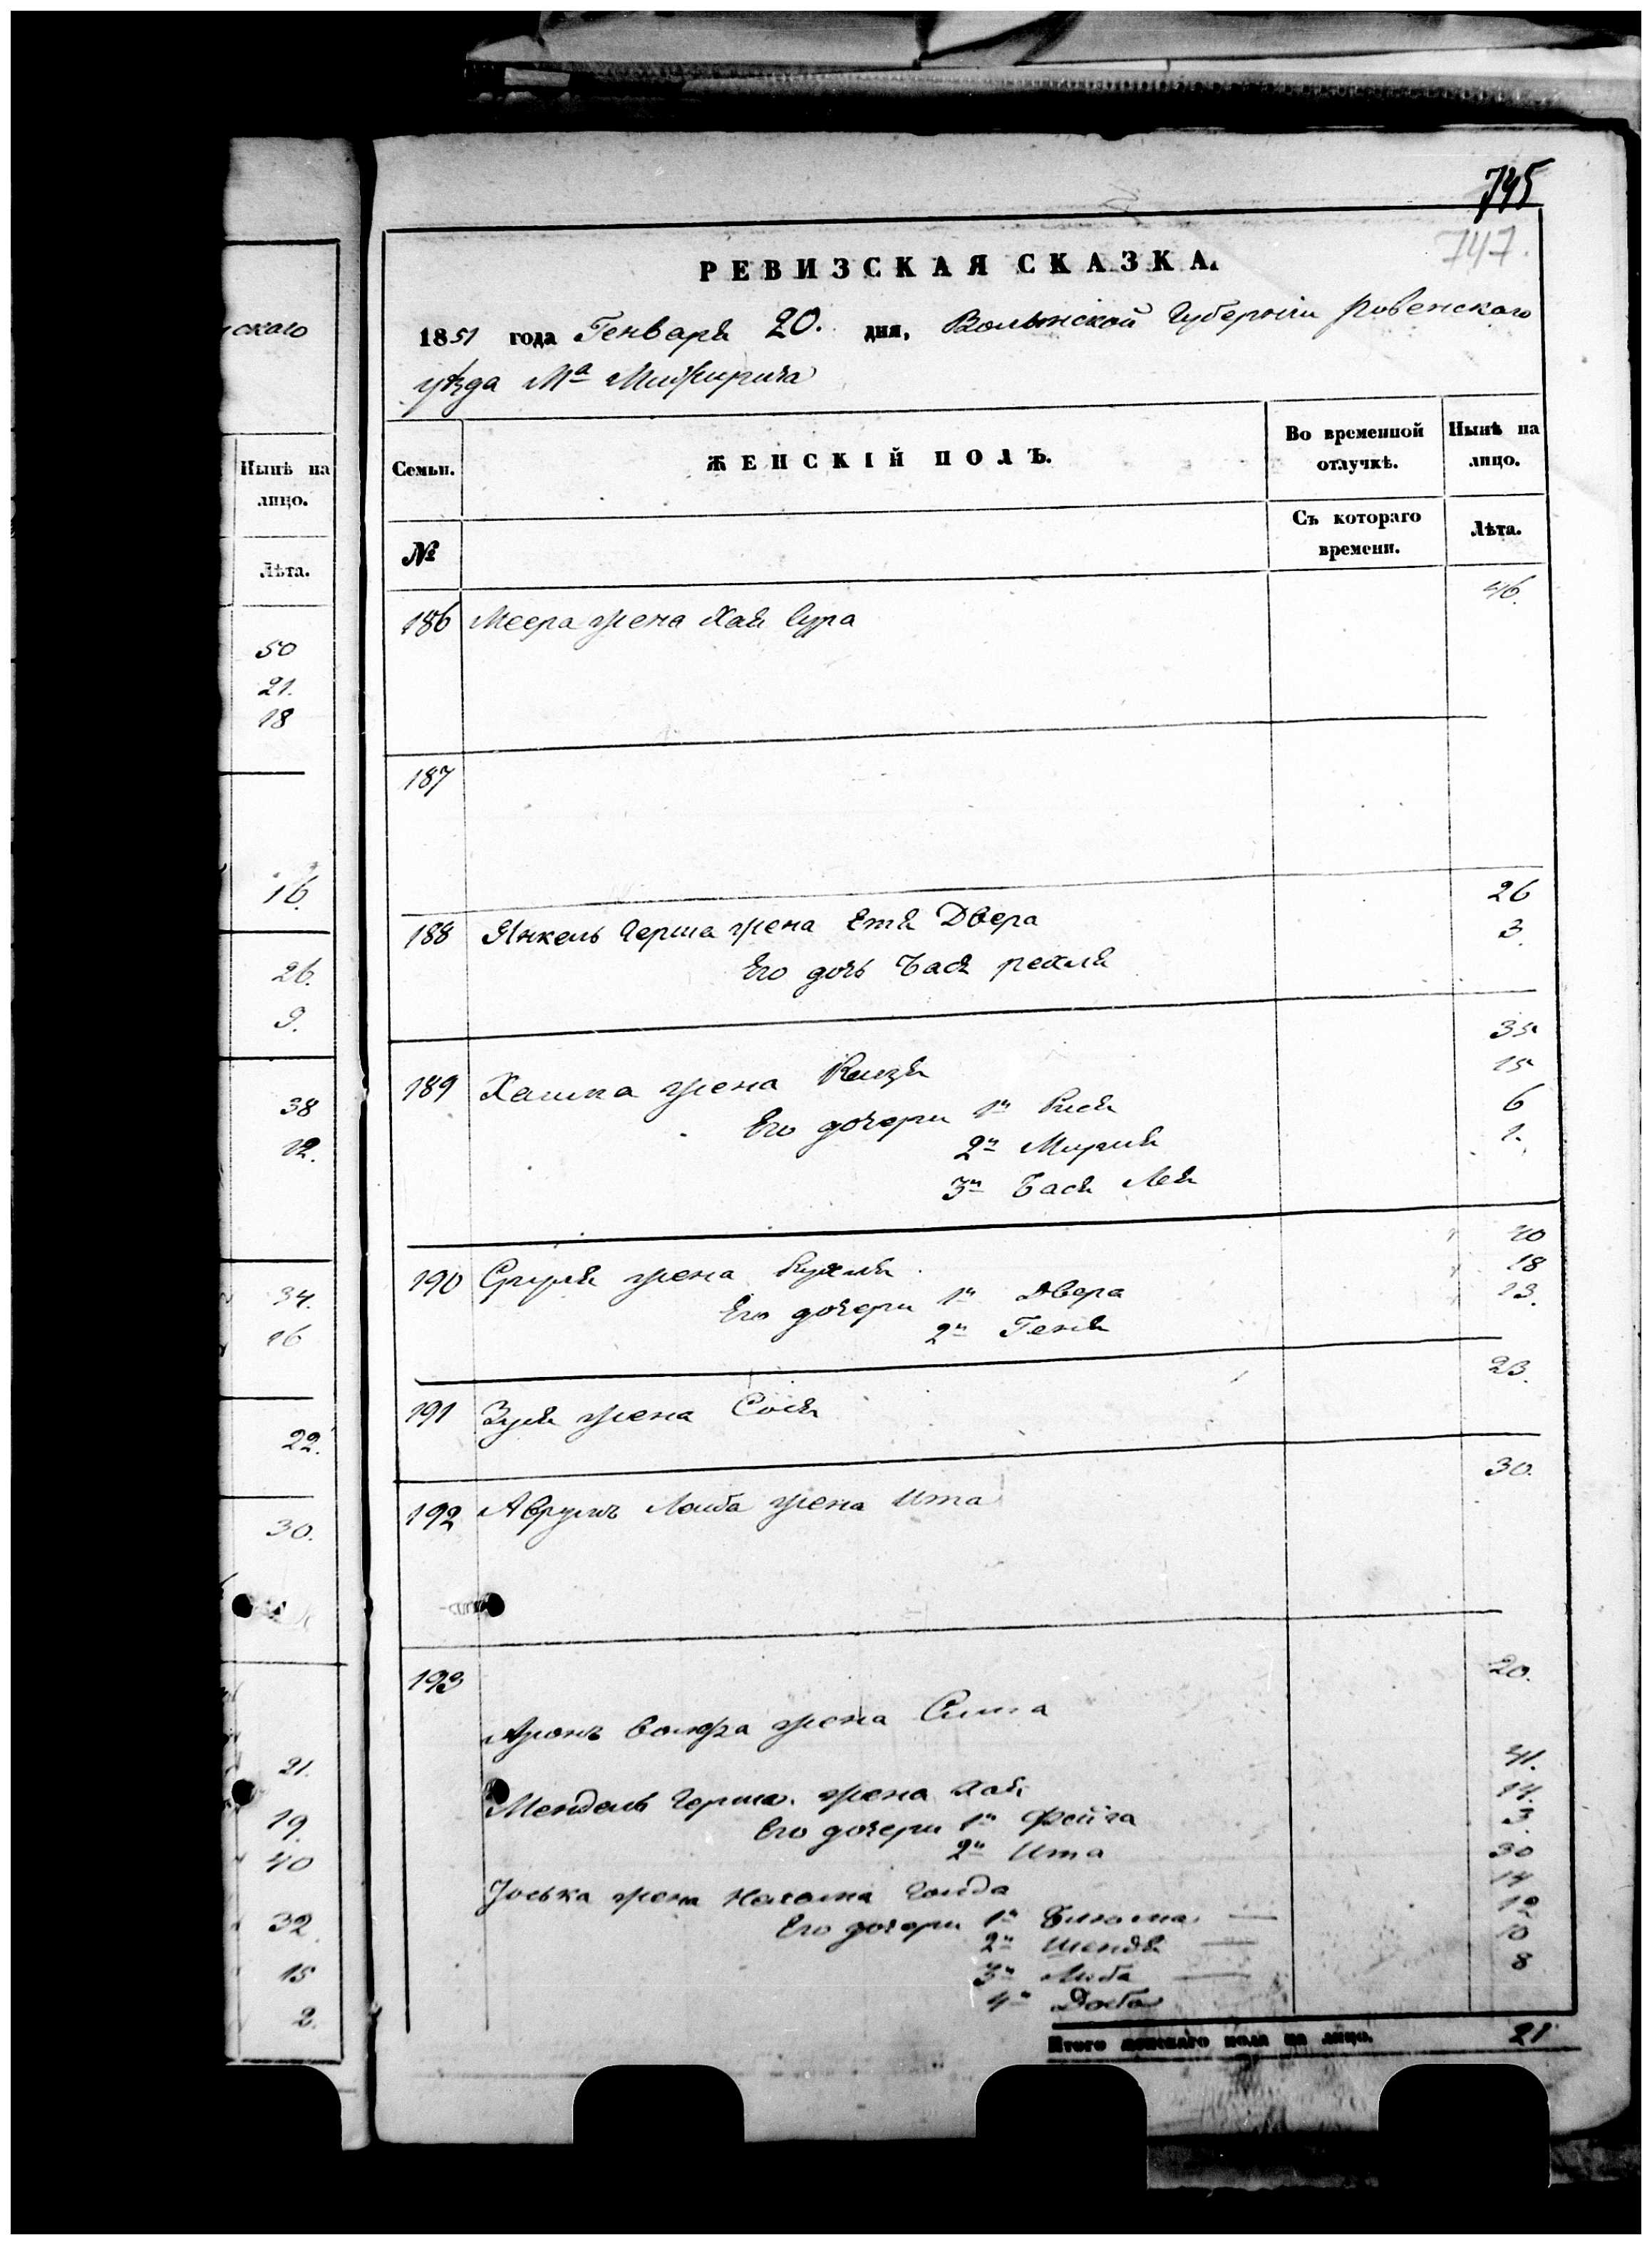 скаго
Нынѣ на
лицо.
Лѣта.
50
21.
18
16.
26.
9.
38
12.
34.
16
22.
30.
21.
19.
40
32.
15
2.
745
747.
РЕВИЗСКАЯ СКАЗКА.
1851 года Генваря 20. дня, Волынской Губерніи Ровенскаго
уѣзда Мª Межирича
Семьи. ЖЕНСКІЙ ПОЛЪ. Во временной отлучкѣ. Нынѣ на лицо.
№ Съ котораго времени. Лѣта.
186 Меера жена Хая Сура 46.
187
188 Янкель Герша жена Етя Двера 26
Его дочь Бася Рехля 3.
189 Хаима жена 35
Его дочери 1я Рися 15
2я Мирия 6
3я Бася Лея 1.
190 Сруля жена Рухля 40
Его дочери 1я Двера 18
2я Геня 13.
191 Зуся жена Сося 23.
192 Аврумъ Лейба жена Ита 30.
193
Аронъ Вольфа жена Сима 20.
Мендель Герша жена Хая 41.
Его дочери 1я Фейга 14.
2я Ита 3.
Іоська жена Нахама Голда 30
Его дочери 1я Блюма 14
2я Шендя 12
3я Либа 10
4я Доба 8
Итого женскаго пола на лицо. 21